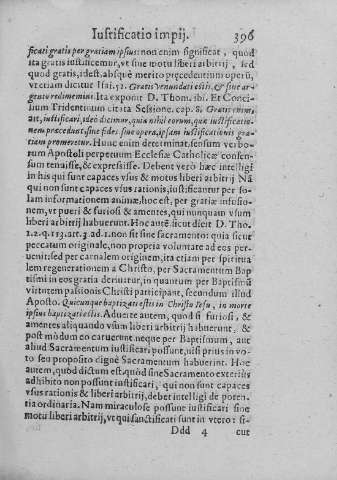 Iustificatio impij. 396
ficati gratis per gratiam ipsius: non enim significat, quod
ita gratis iustificemur, vt sine motu liberi arbitrij, sed
quod gratis, idest, absq; merito precedentium operũ,
vt etiam dicitur Isai. 52. Gratis venundati estis, & sine ar-
gento redimemini. Ita exponit D. Thom. ibi. Et Conci-
lium Tridentinum citata Sessione, cap. 8. Gratis enim,
ait, iustificari, ideo dicimur, quia nihil eorum, quæ iustificatio-
nem præcedunt, siue fides, siue opera, ipsam iustificationis gra-
tiam promeretur. Hunc enim determinat sensum verbo-
rum Apostoli perpetuum Ecclesiæ Catholicæ consen-
sum tenuisse, & expressisse. Debent verò hæc intelligi
in his qui sunt capaces vsus & motus liberi arbitrij Nã
qui non sunt capaces vsus rationis, iustificantur per so-
lam informationem animæ, hoc est, per gratiæ infusio-
nem, vt pueri & furiosi & amentes, qui nunquam vsum
liberi arbitrij habuerunt. Hoc autẽ sicut dicit D. Tho.
1.2.q.113.art.3.ad.1. non fit sine sacramento: quia sicut
peccatum originale, non propria voluntate ad eos per-
uenit, sed per carnalem originem, ita etiam per spiritua
lem regenerationem à Christo, per Sacramentum Bap
tismi in eos gratia deriuatur, in quantum per Baptismũ
virtutem passionis Christi participant, secundum illud
Aposto. Quicunque baptizati estis in Christo Iesu, in morte
ipsius baptizati estis. Aduerte autem, quod si furiosi, &
amentes aliquando vsum liberi arbitrij habuerint, &
post modum eo caruerint, neque per Baptismum, aut
aliud Sacramentum iustificari possunt, nisi prius in vo-
to seu proposito dignè Sacramentum habuerint. Hoc
autem, quod dictum est, quòd sine Sacramento exteriùs
adhibito non possunt iustificari, qui non sunt capaces
vsus rationis & liberi arbitrij, debet intelligi de poten-
tia ordinaria. Nam miraculose possunt iustificari sine
motu liberi arbitrij, vt qui sanctificati sunt in vtero: si-
Ddd 4 cut